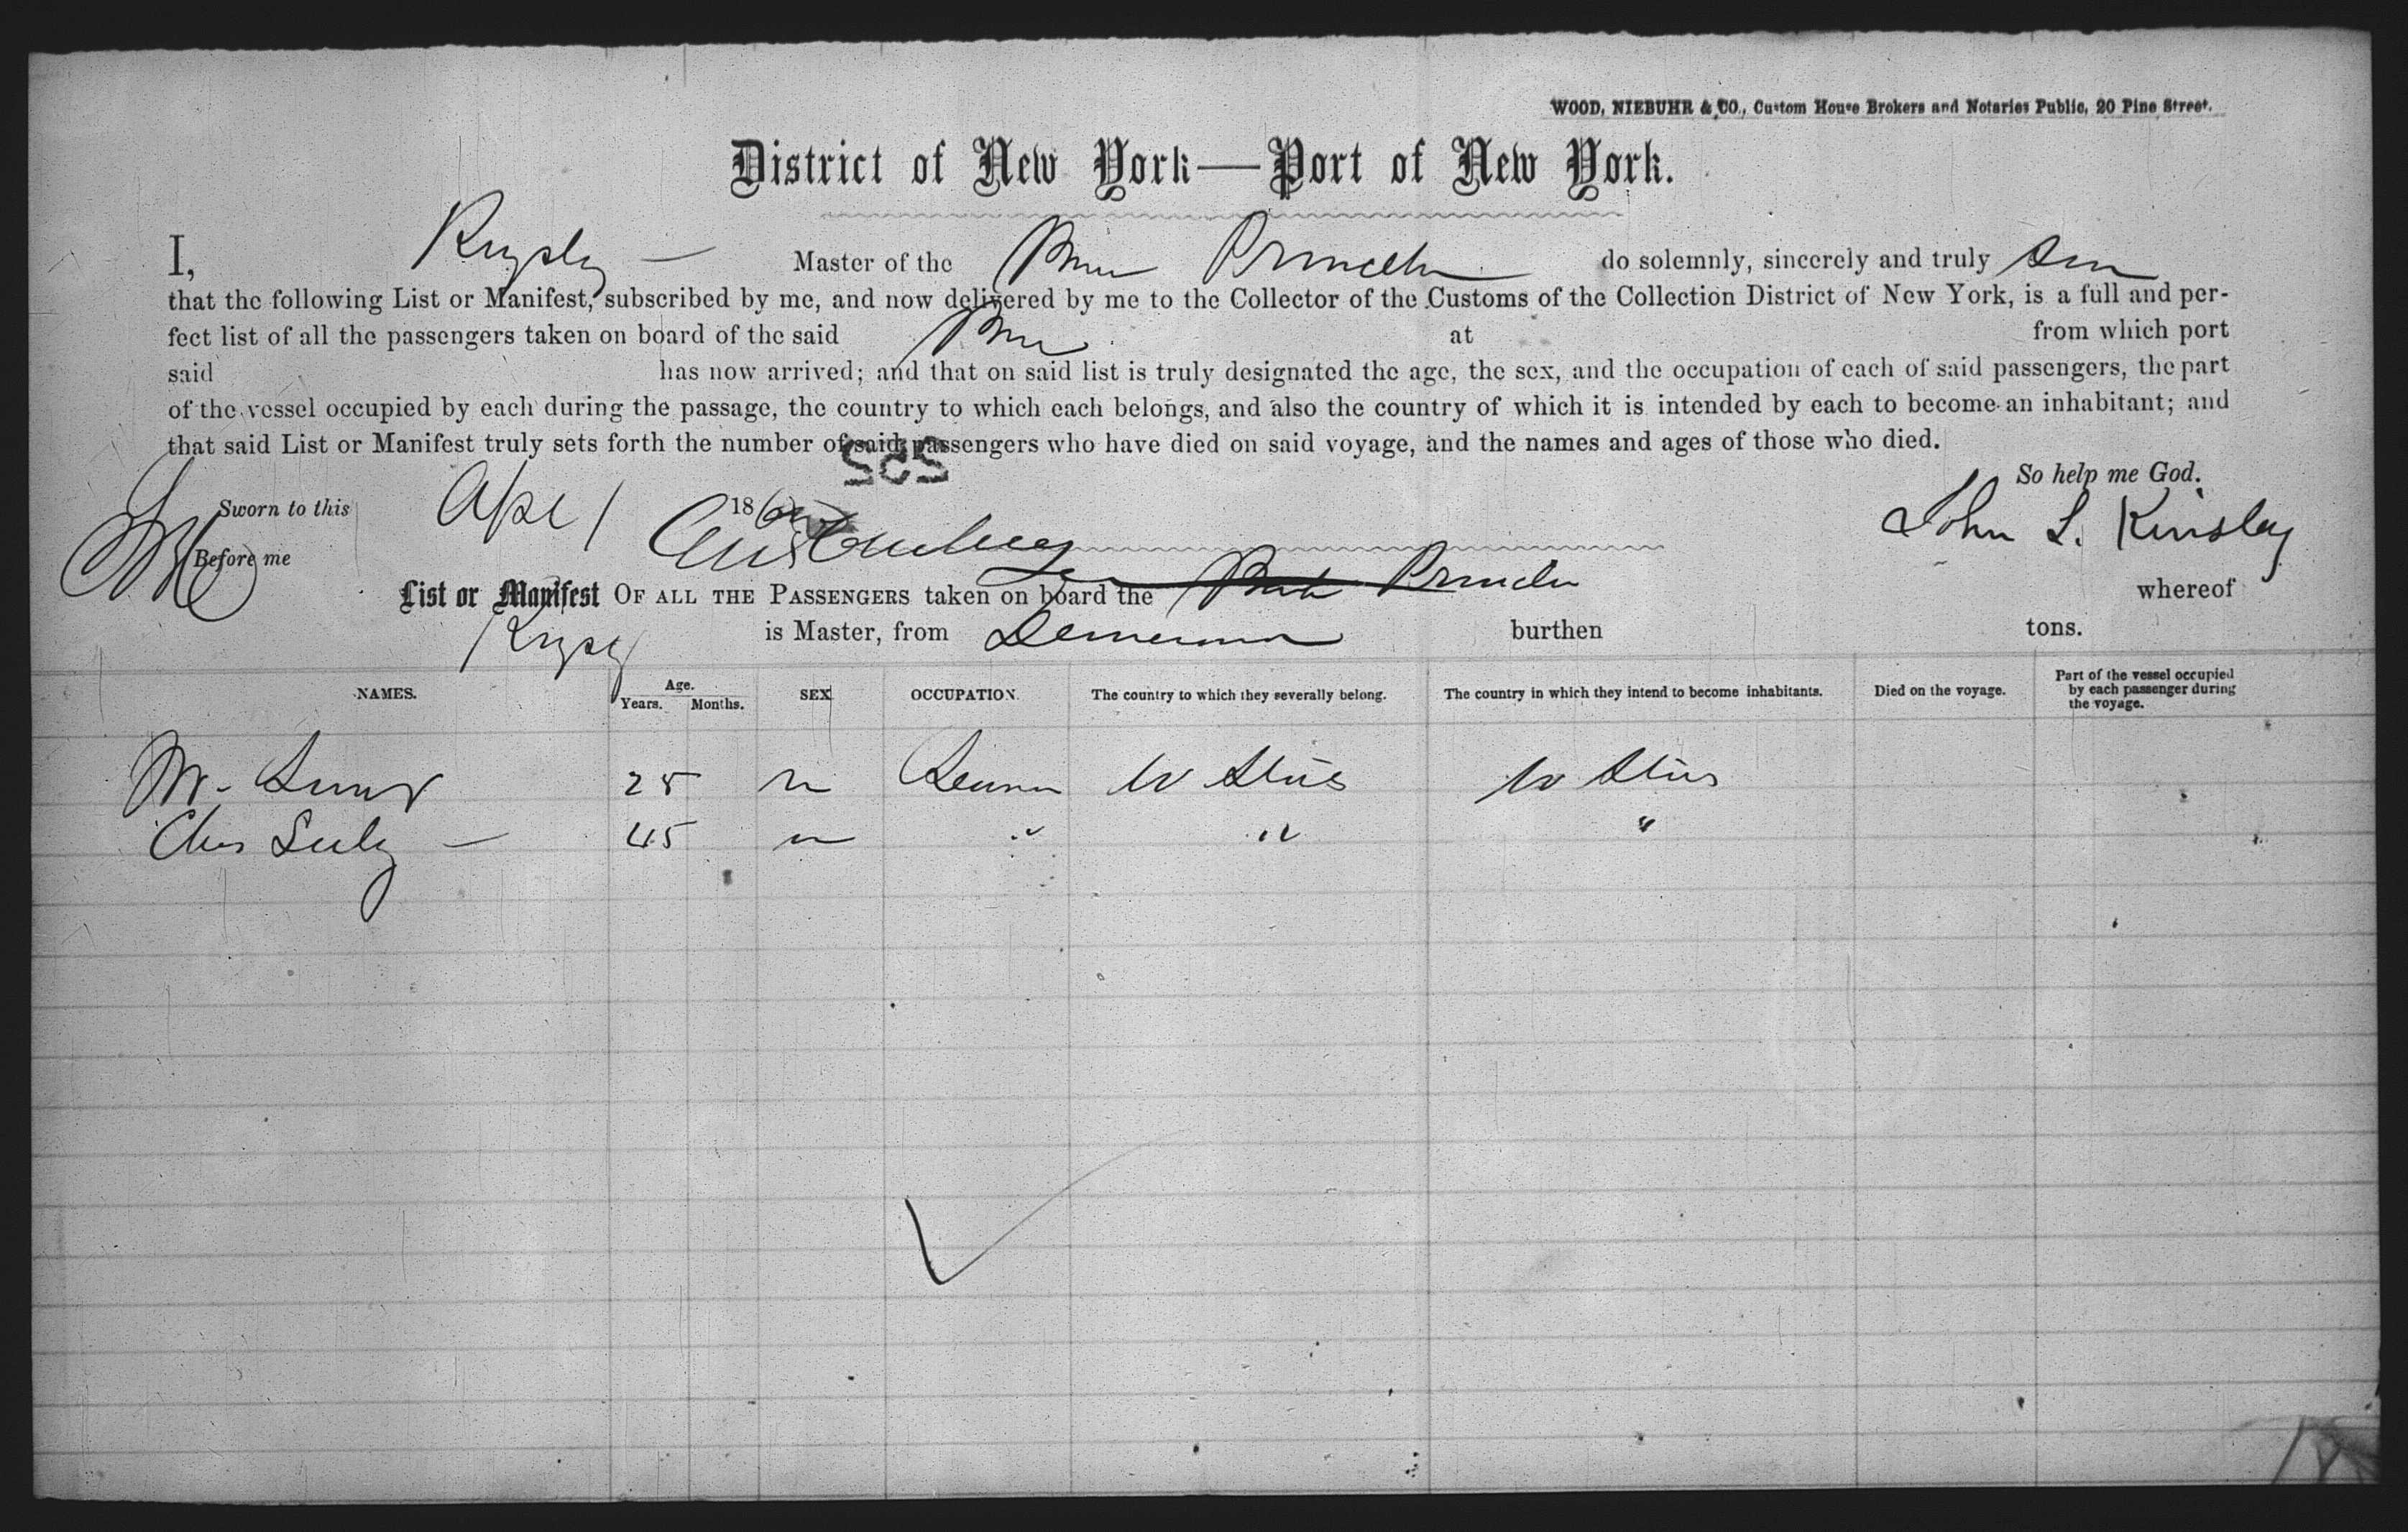 WOOD, NIEBUHR & CO., Custom House Brokers and Notaries Public, 20 Pine Street.
District of New York—Port of New York.
I, Master of the do solemnly, sincerely and truly
that the following List or Manifest, subscribed by me, and now delivered by me to the Collector of the Customs of the Collection District of New York, is a full and per-
fect list of all the passengers taken on board of the said at from which port
said has now arrived; and that on said list is truly designated the age, the sex, and the occupation of each of said passengers, the part
of the vessel occupied by each during the passage, the country to which each belongs, and also the country of which it is intended by each to become an inhabitant; and
that said List or Manifest truly sets forth the number of said passengers who have died on said voyage, and the names and ages of those who died.
So help me God.
Sworn to this Apl 1 186
John L. Kinsley
Before me
List or Manifest OF ALL THE PASSENGERS taken on board the whereof
is Master, from burthen tons.
NAMES. Age. Years. Months. SEX OCCUPATION. The country to which they severally belong. The country in which they intend to become inhabitants. Died on the voyage. Part of the vessel occupied by each passenger during the voyage.
25 m
45 m " " "